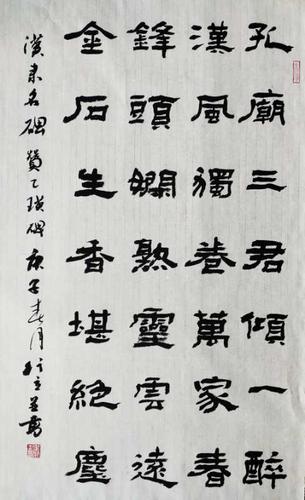 孔廟三君傾一醉
漢風獨卷萬家春
鋒頭嫻熟靈雲遠
金石生香堪絕塵
漢名碑贊乙瑛碑庚子春月